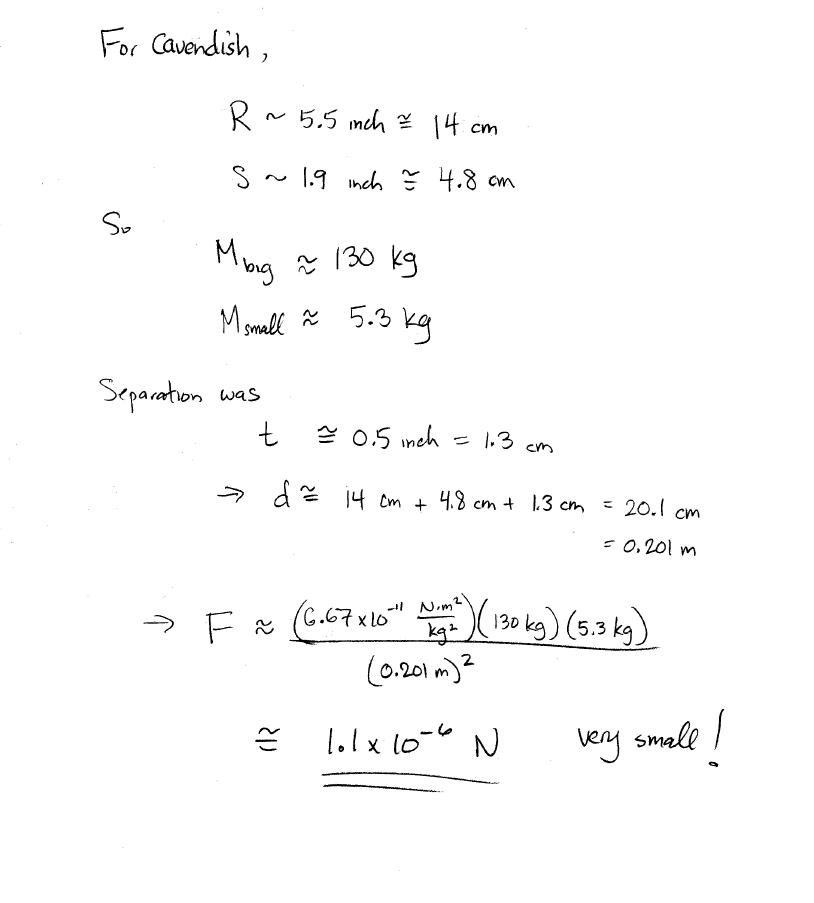 For Cavendish,
R ~ 5.5 inch ≅ 14 cm
S ~ 1.9 inch ≅ 4.8 cm
So
M_big ≈ 130 kg
M_small ≈ 5.3 kg
Separation was
t ≅ 0.5 inch = 1.3 cm
⇒ d ≅ 14 cm + 4.8 cm + 1.3 cm = 20.1 cm
= 0.201 m
→ F ≈ (6.67 x 10^-11 N·m^2/kg^2)(130 kg)(5.3 kg) / (0.201 m)^2
≅ 1.1 x 10^-6 N very small!